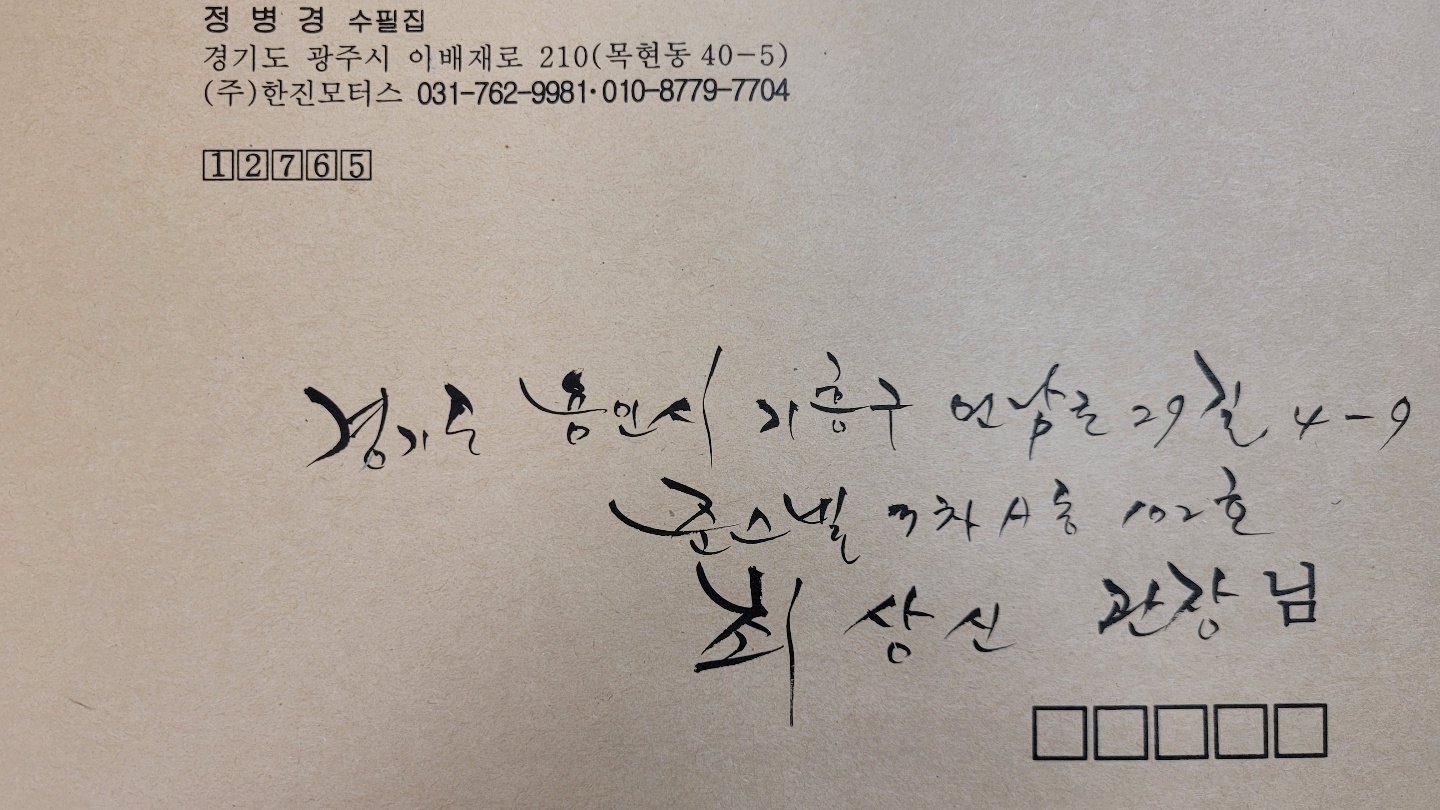 정 병 경 수필집
경기도 광주시 이배재로 210(목현동 40-5)
(주)한진모터스 031-762-9981·010-8779-7704
12765
경기도 용인시 기흥구 언남로 29길 4-9
준스빌 3차 A동 102호
최상신 관장님